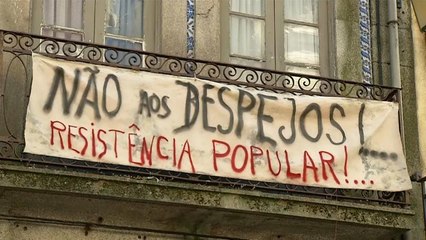 NÃO AOS DESPEJOS!....
RESISTÊNCIA POPULAR!...